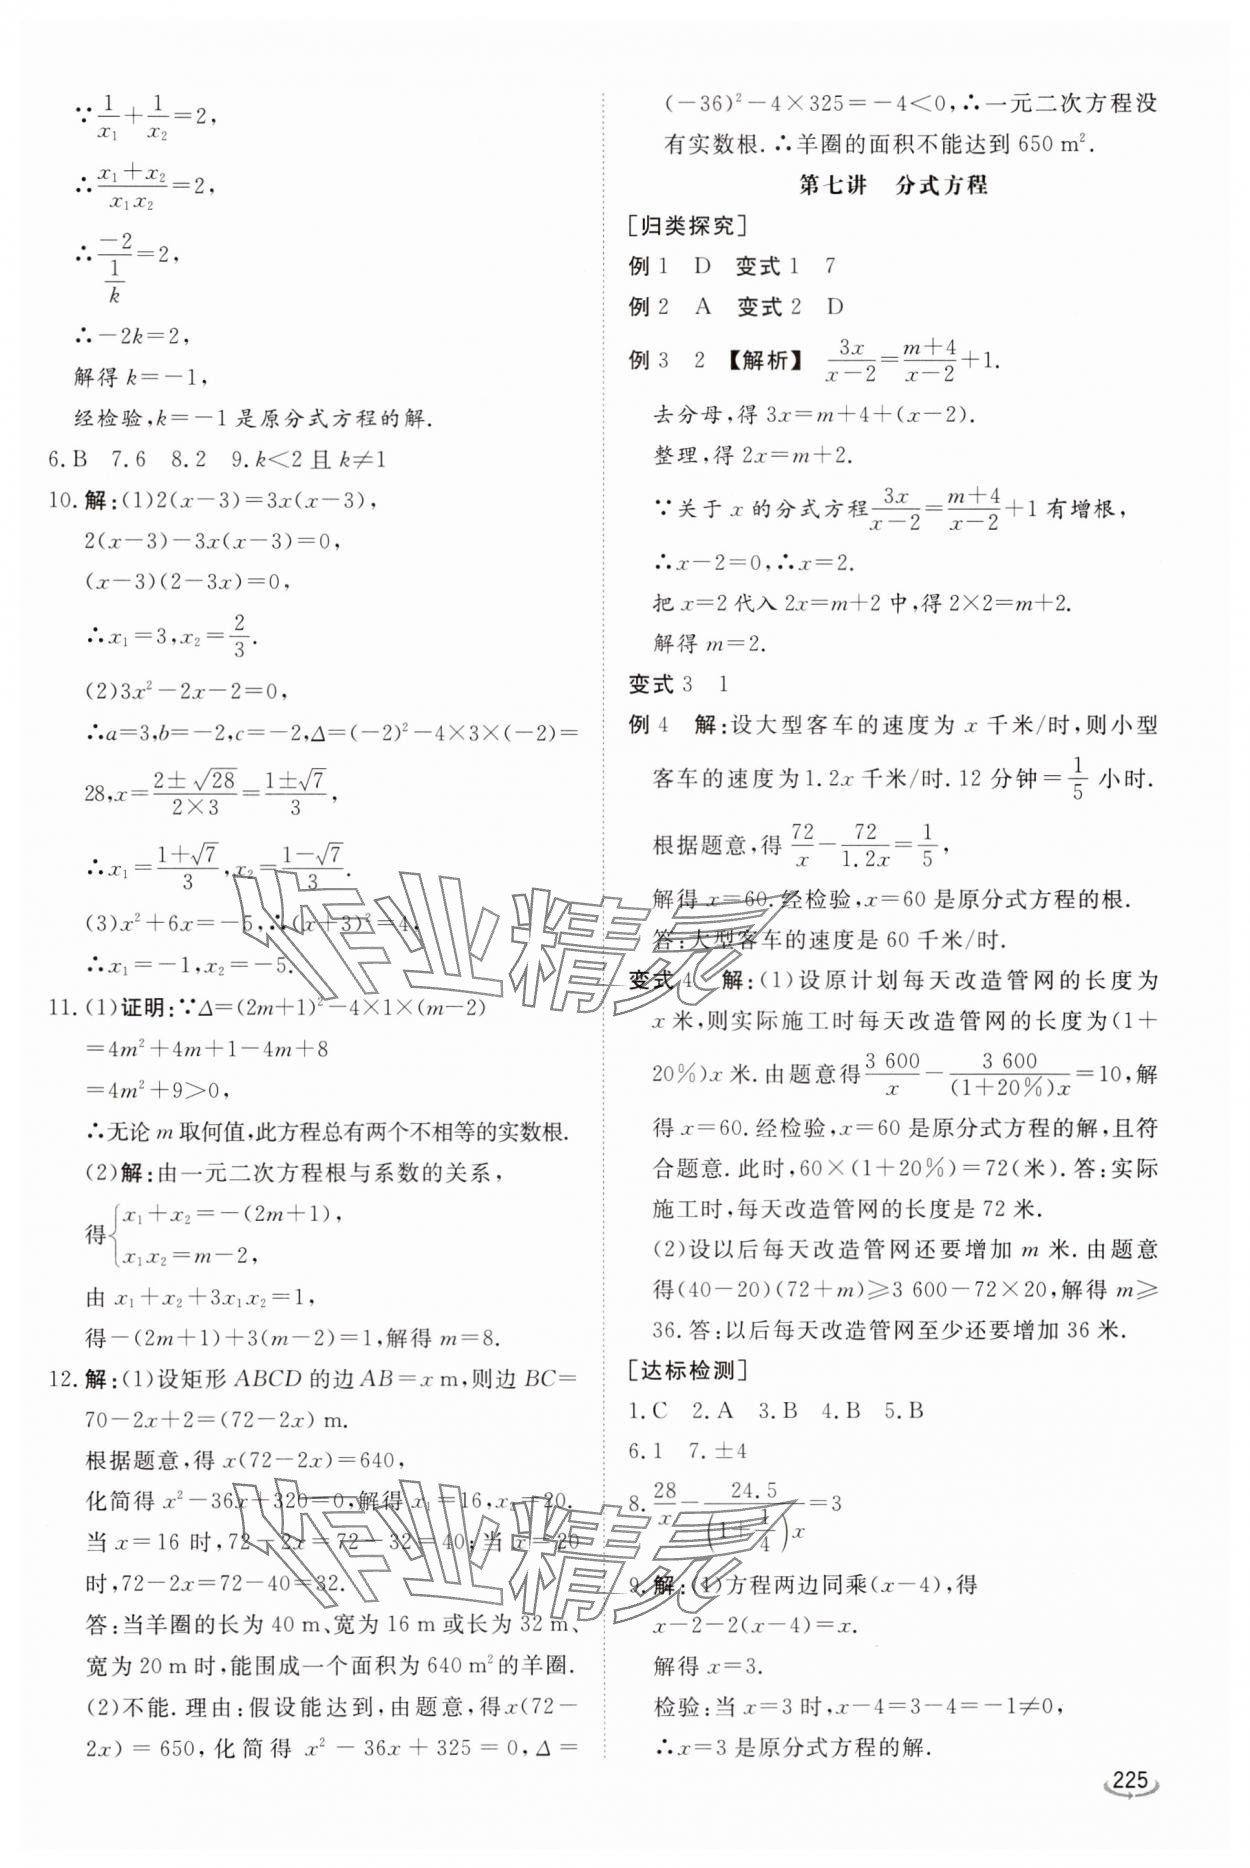 ∵1/x₁+1/x₂=2,
∴(x₁+x₂)/(x₁x₂)=2,
∴(-2)/(1/k)=2,
∴-2k=2,
解得 k=-1,
经检验,k=-1 是原分式方程的解.
6.B 7.6 8.2 9.k<2 且 k≠1
10.解:(1)2(x-3)=3x(x-3),
2(x-3)-3x(x-3)=0,
(x-3)(2-3x)=0,
∴x₁=3,x₂=2/3.
(2)3x²-2x-2=0,
∴a=3,b=-2,c=-2,Δ=(-2)²-4×3×(-2)=
28,x=(2±√28)/(2×3)=(1±√7)/3,
∴x₁=(1+√7)/3,x₂=(1-√7)/3.
(3)x²+6x=-5,∴(x+3)²=4,
∴x₁=-1,x₂=-5.
11.(1)证明:∵Δ=(2m+1)²-4×1×(m-2)
=4m²+4m+1-4m+8
=4m²+9>0,
∴无论 m 取何值,此方程总有两个不相等的实数根.
(2)解:由一元二次方程根与系数的关系,
得{x₁+x₂=-(2m+1),
x₁x₂=m-2,
由 x₁+x₂+3x₁x₂=1,
得-(2m+1)+3(m-2)=1,解得 m=8.
12.解:(1)设矩形 ABCD 的边 AB=x m,则边 BC=
70-2x+2=(72-2x) m.
根据题意,得 x(72-2x)=640,
化简得 x²-36x+320=0,解得 x₁=16,x₂=20.
当 x=16 时,72-2x=72-32=40;当 x=20
时,72-2x=72-40=32.
答:当羊圈的长为 40 m、宽为 16 m 或长为 32 m、
宽为 20 m 时,能围成一个面积为 640 m²的羊圈.
(2)不能.理由:假设能达到,由题意,得x(72-
2x)=650,化简得 x²-36x+325=0,Δ=
(-36)²-4×325=-4<0,∴一元二次方程没
有实数根.∴羊圈的面积不能达到 650 m².
第七讲 分式方程
[归类探究]
例1 D 变式1 7
例2 A 变式2 D
例3 2 【解析】 3x/(x-2)=(m+4)/(x-2)+1.
去分母,得 3x=m+4+(x-2).
整理,得 2x=m+2.
∵关于 x 的分式方程3x/(x-2)=(m+4)/(x-2)+1 有增根,
∴x-2=0,∴x=2.
把 x=2 代入 2x=m+2 中,得 2×2=m+2.
解得 m=2.
变式3 1
例4 解:设大型客车的速度为 x 千米/时,则小型
客车的速度为1.2x 千米/时.12 分钟=1/5 小时.
根据题意,得 72/x-72/1.2x=1/5,
解得 x=60.经检验,x=60 是原分式方程的根.
答:大型客车的速度是 60 千米/时.
变式4 解:(1)设原计划每天改造管网的长度为
x 米,则实际施工时每天改造管网的长度为(1+
20%)x 米.由题意得3 600/x-3 600/((1+20%)x)=10,解
得 x=60.经检验,x=60 是原分式方程的解,且符
合题意.此时,60×(1+20%)=72(米).答:实际
施工时,每天改造管网的长度是 72 米.
(2)设以后每天改造管网还要增加 m 米.由题意
得(40-20)(72+m)≥3 600-72×20,解得 m≥
36.答:以后每天改造管网至少还要增加 36 米.
[达标检测]
1.C 2.A 3.B 4.B 5.B
6.1 7.±4
8.28/x-24.5/((1+1/4)x)=3
9.解:(1)方程两边同乘(x-4),得
x-2-2(x-4)=x.
解得 x=3.
检验:当 x=3 时,x-4=3-4=-1≠0,
∴x=3 是原分式方程的解.
225
作业精灵
作业精灵